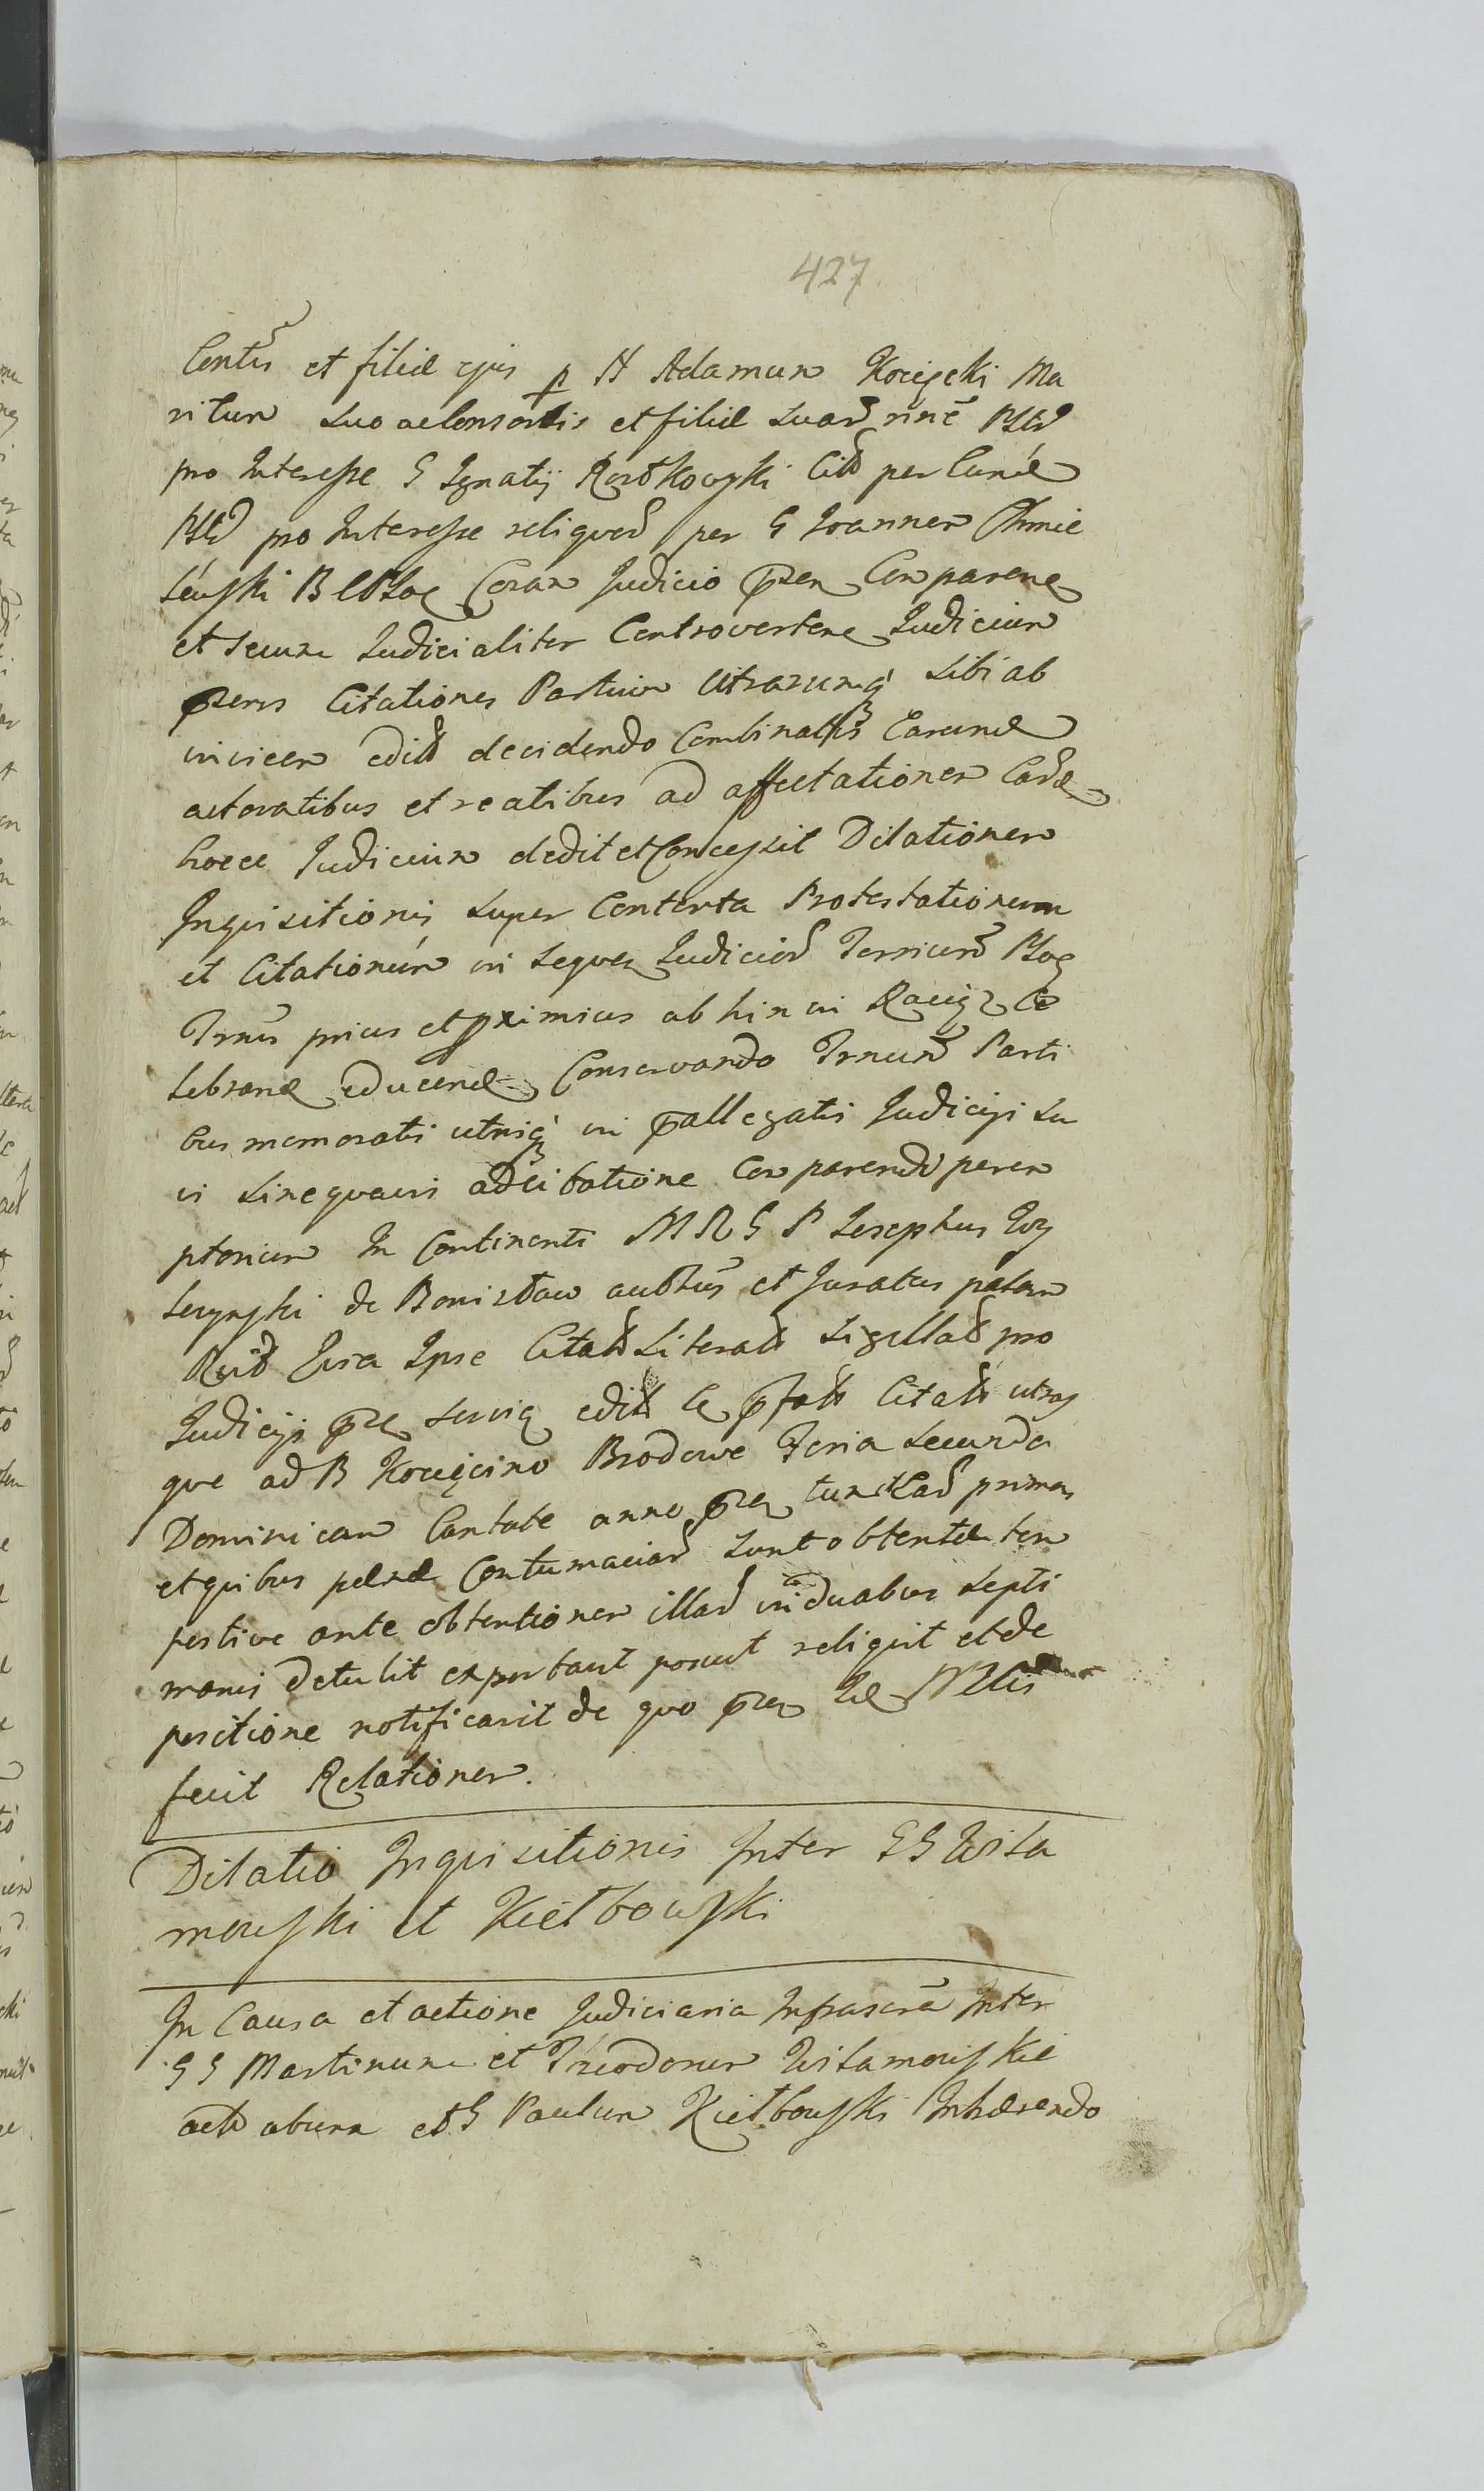 427
et filiæ ejus p N Adamum Kocięcki Ma
ritum suo ac consortis et filiæ suar nne
pro Interesse G Ignatij Rostkowski Citt per eund
pro Interesse reliquod per G Joannem Chmie
lewski Coram Judicio pren Comparene
et secum Judicialiter Controvertene Judicium
prens Citationes Partium utrarumq sibi ab
invicem editt decidendo Combinattis Earund
actoratibus et reatibus ad affectationem
hocce Judicium dedit et Concessit Dilationem
Inquisitionis super Contenta Protestationum
et Citationum in seque Judicior Terricum
Trnis prius et proximius ab hin in Raciąz Ce
lebrand educend Conservando Trnum Parti
bus memoratis utrisq in pallegatis Judicijs su
is sine quavis adcitatione Comparendi perem
ptorium In Continenti M R G P Josephus
de Bonisław authus et Juratus palam
Jura Ipse Citatt Literatt Sigillatt pro
Judicijs pre servig editt pfatt Citatt utras
que ad B Kocięcino Brodowe Feria Secunda
Dominicam Cantate anno pre primas
et quibus pænæ Contumaciar sunt obtentæ tem
pestive ante obtentionem illar in duabus septi
manis detulit exportavit posuit reliquit et de
positione notificavit de quo pre
fecit Relationem.
Dilatio Inquisitionis Inter GG Wila
mowski et Kiełbowski
In Causa et actione Judiciaria Infrascra Inter
GG Martinum et Theodorum Wilamowskie
et G Paulum Kiełbowski Inhærendo